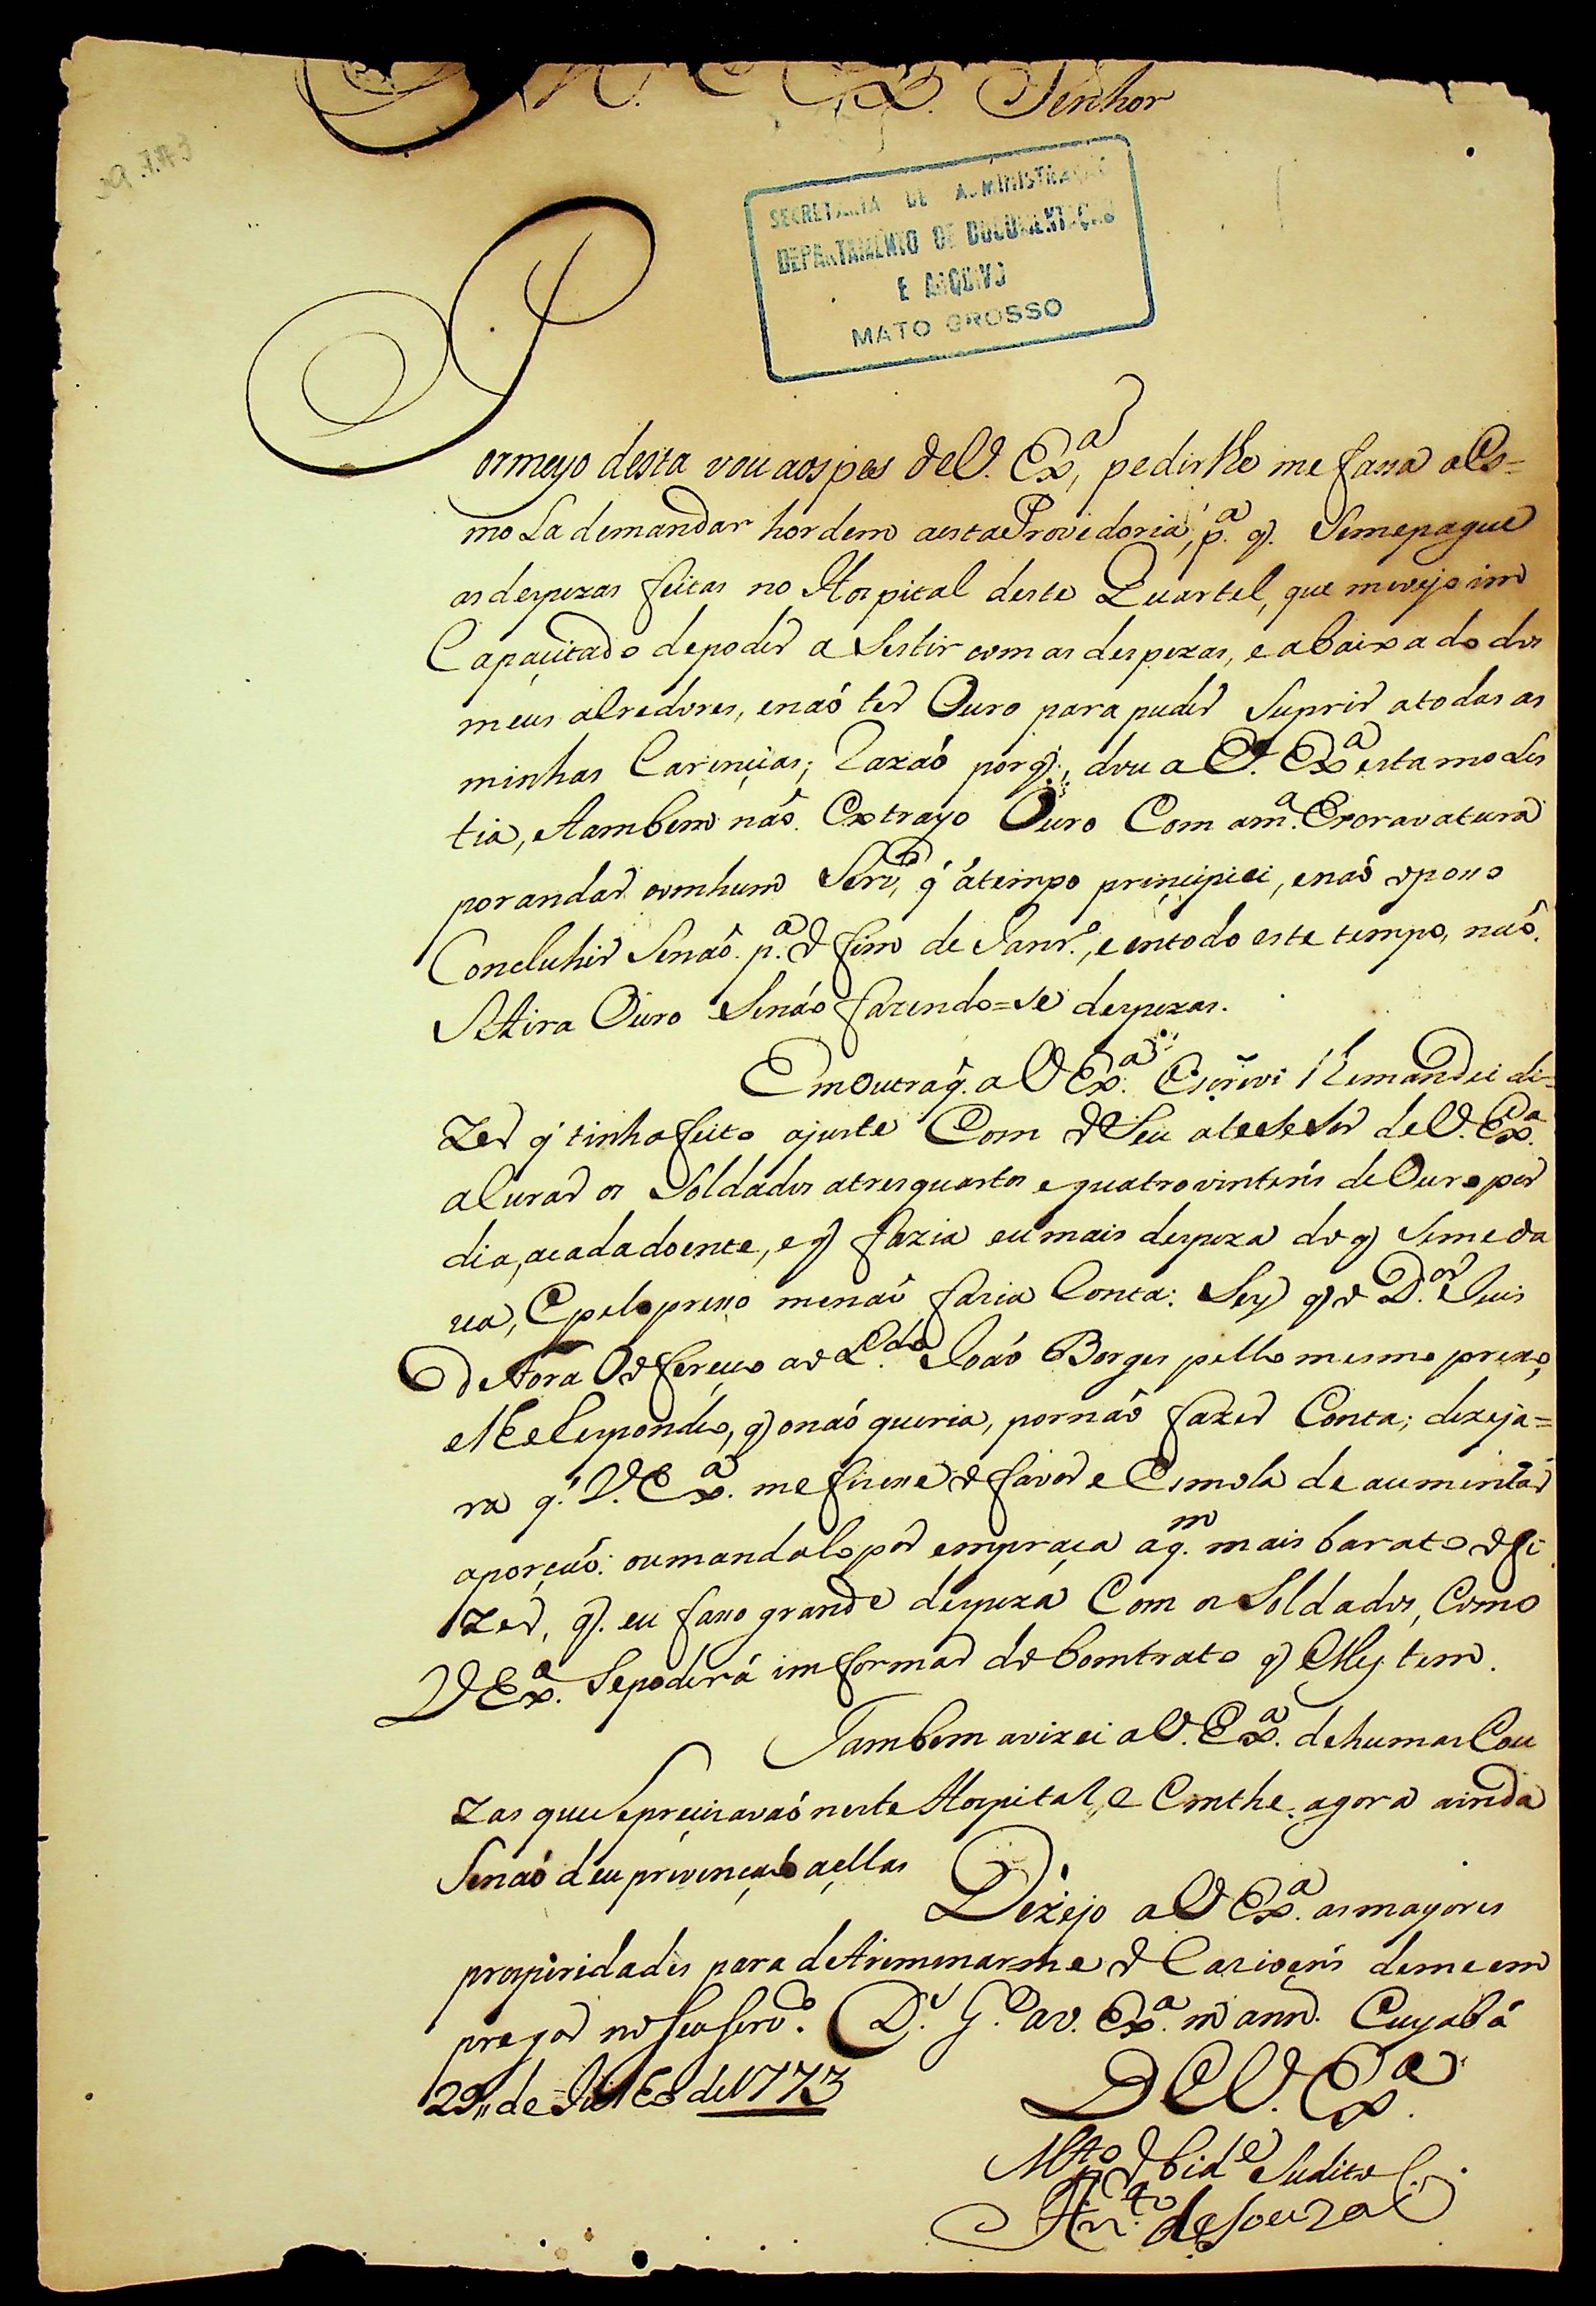 Senhor
29.7.773
SECRETARIA DE ADMINISTRAÇÃO
DEPARTAMENTO DE DOCUMENTAÇÃO
E ARQUIVO
MATO GROSSO
Por meyo desta vou aos pes de V. Exª, pedir lhe me fassa a Es=
mola de mandar hordem a esta Provedoria, pª q. Se me pague
as despezas feitas no Hospital deste Quartel, que me vejo im
Capacitado de poder a Sestir com as despezas, e abaixado dos
meus acredores, e naó ter Ouro para puder Suprir a todas as
minhas Carencias; Razaó por q., dou a V. Exª esta moles
tia, e tambem naó Extrayo Ouro Com a mª Escravatura
por andar com hum Servº, q̃ á tempo principiei, e naó o posso
Concluhir Senaó pª o fim de Janrº, e en todo este tempo, naó
Se tira Ouro Senáo fazendo=se despezas.
Em Outra q̃ a V Exª Escrevi lhe mandei di=
zer q̃ tinha feito ajuste Com o Seu atecesor de V. Exª
a Curar os Soldados a tres quartos e quatro vinténs de Ouro por
dia, a cada doente, e q fazia eu mais despeza do q Se me da
va, E pelo presso me naó fazia Conta: Sey q o D.or Juis
De Fora Offereceo ao L.do Joaó Borges pello mesmo presso,
e lhe Respondeo, q o naó queria, por naó fazer Conta; dezeja=
ra q. V. Exª me fizesse o favor e Esmola de aumentar
a porçaó: ou mandalo por em praça a q.m mais barato o fi
zer, q. eu fasso grande despeza Com os Soldados, Como
V Exª Se poderá imformar do bom trato q Elles tem.
Tambem avizei a V. Exª de humas Cou
zas que Se precizavaó neste Hospital, e Em the agora ainda
Senaó deu provençaó a ellas
Dezejo a V Exª as mayores
prosperidades para de me em
pregar no Seu Servº. D.s G.e a V. Exª m ann. Cuyabá
29,, de Julho de 1773
DE V. Exª
M.to Obid.e Sudito
An.to de Souza